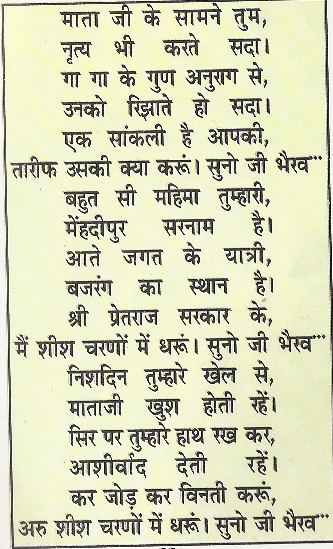 माता जी के सामने तुम,
नृत्य भी करते सदा।
गा गा के गुण अनुराग से,
उनको रिझाते हो सदा।
एक सांकली है आपकी,
तारीफ उसकी क्या करूं। सुनो जी भैरव...
बहुत सी महिमा तुम्हारी,
मेंहदीपुर सरनाम है।
आते जगत के यात्री,
बजरंग का स्थान है।
श्री प्रेतराज सरकार के,
मैं शीश चरणों में धरूं। सुनो जी भैरव...
निशदिन तुम्हारे खेल से,
माताजी खुश होती रहें।
सिर पर तुम्हारे हाथ रख कर,
आशीर्वाद देती रहें।
कर जोड़ कर विनती करूं,
अरु शीश चरणों में धरूं। सुनो जी भैरव...